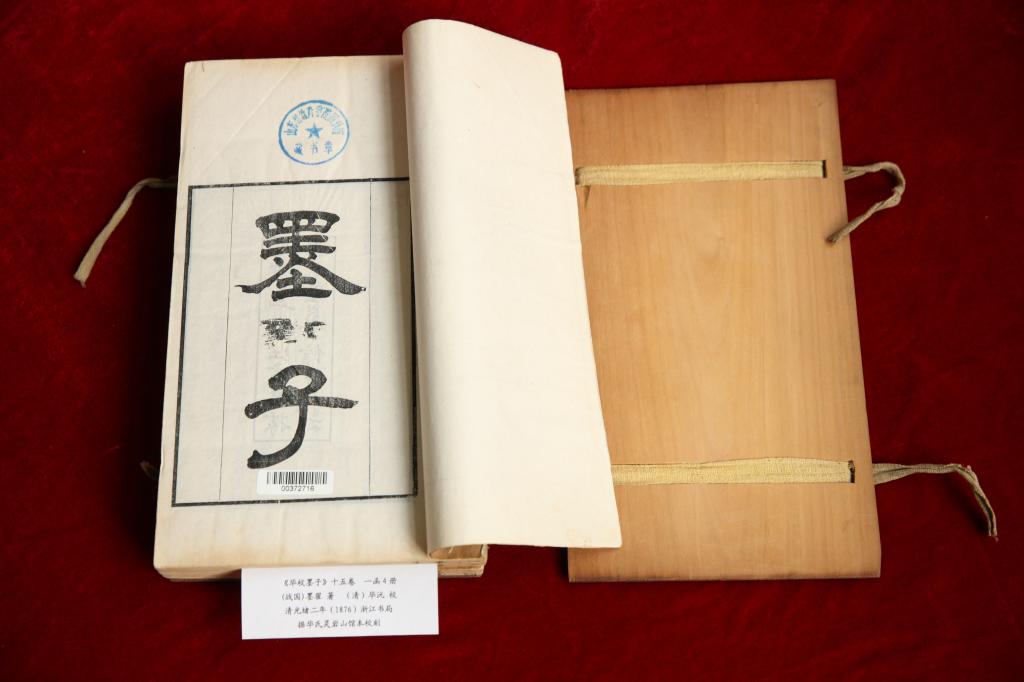 藏书章
墨
子
00372716
《毕校墨子》十五卷 一函4册
(战国)墨翟 著 (清)毕沅 校
清光绪二年(1876)浙江书局
据毕氏灵岩山馆本校刻